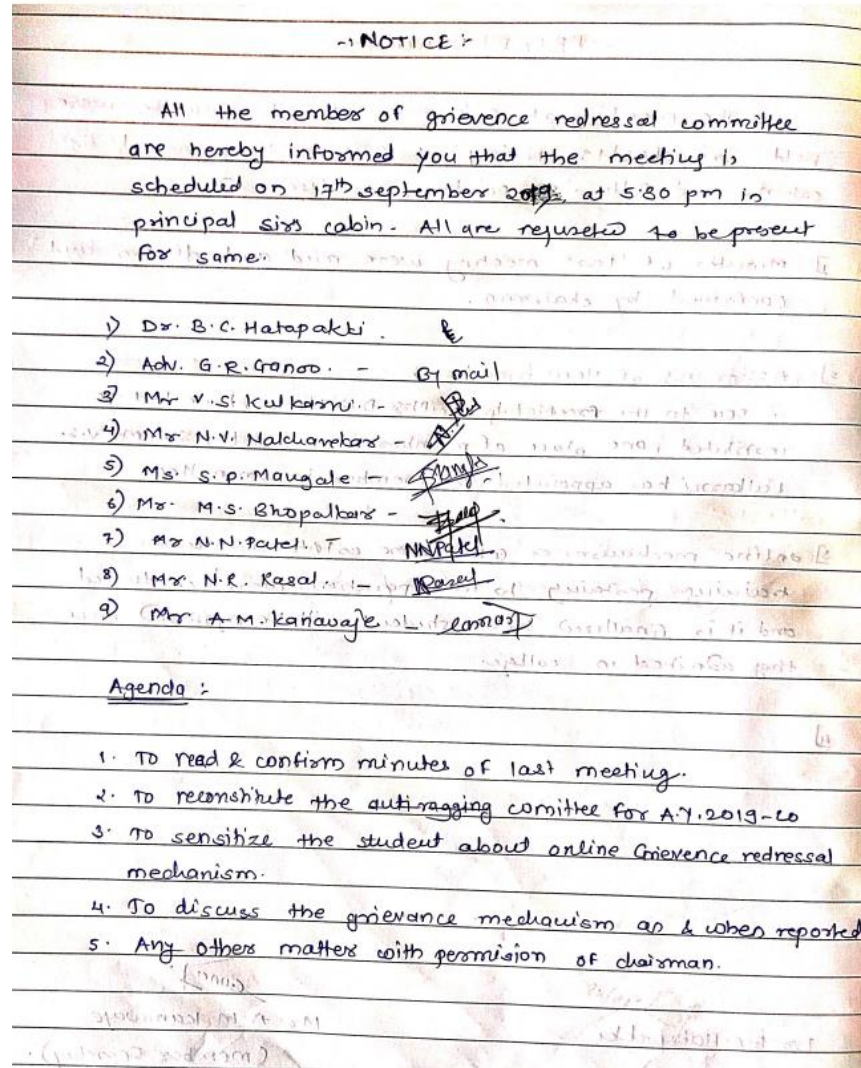 -: NOTICE :-
All the member of grievence redressal committee
are hereby informed you that the meeting is
scheduled on 17th september 2019, at 5.30 pm in
principal sirs cabin. All are requseted to be present
for same.
1) Dr. B.C. Hatapakki.
2) Adv. G.R. Ganoo. - By mail
3) Mr V.S. Kulkarni. -
4) Mr N.V. Nalchanekar -
5) Ms. S.P. Maugale -
6) Mr. M.S. Bhopalkar -
7) Mr N.N. Patel. - NNPatel
8) Mr. N.R. Rasal. - NRasal
9) Mr A.M. Kanavaje -
Agenda :
1. To read & confirm minutes of last meeting.
2. To reconstitute the antiragging comittee for A.Y. 2019-20
3. To sensitize the student about online Grievence redressal
mechanism.
4. To discuss the grievance mechanism as & when reported
5. Any other matter with permision of chairman.